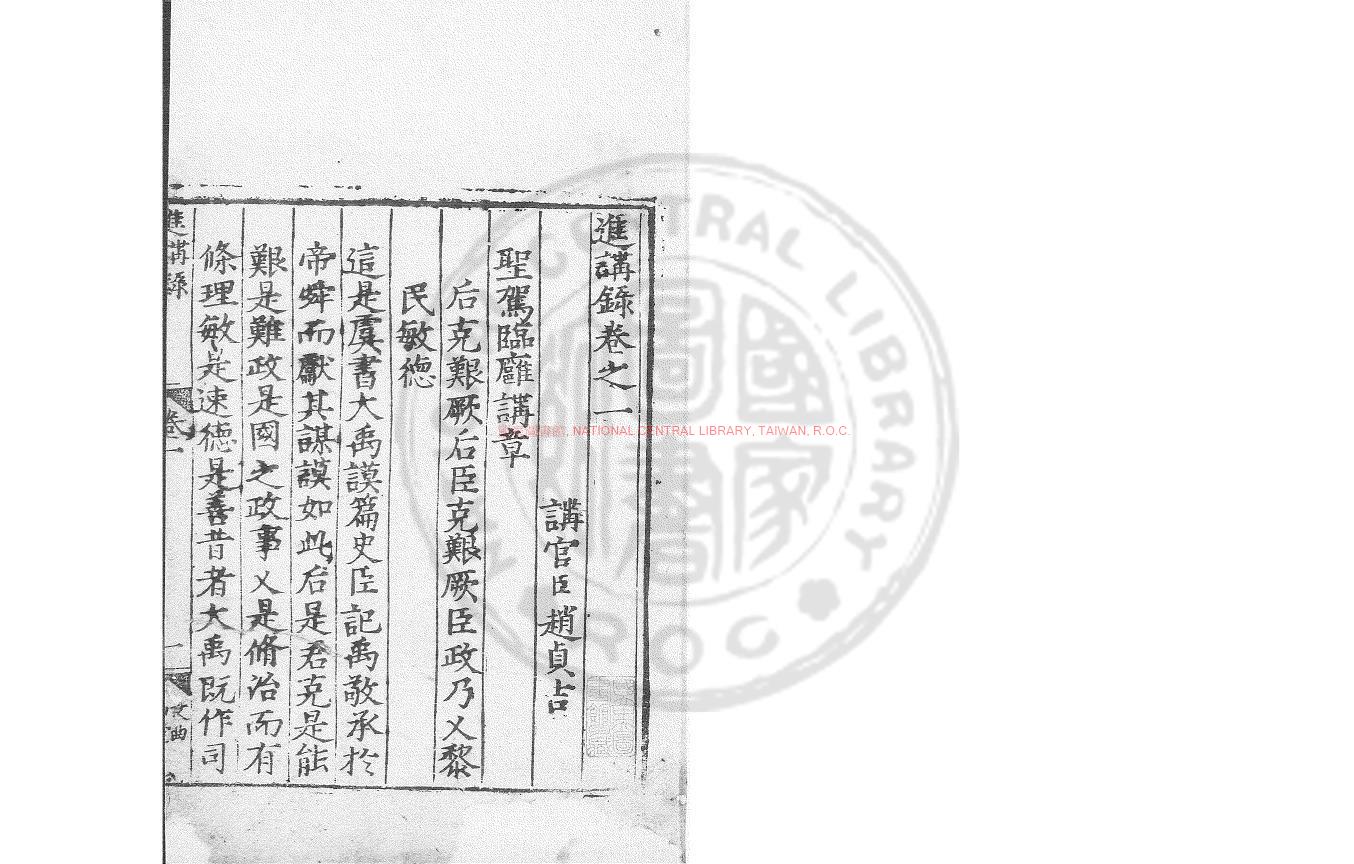 進講録卷之一
講官臣趙貞吉
聖駕臨廱講章
后克艱厥后臣克艱厥臣政乃乂黎
民敏德
這是虞書大禹謨篇史臣記禹敬承於
帝舜而獻其謀謨如此后是君克是能
艱是難政是國之政事乂是脩治而有
條理敏是速德是善昔者大禹既作司
進講録
卷一
一
NATIONAL CENTRAL LIBRARY, TAIWAN, R.O.C.
CENTRAL LIBRARY
R.O.C
國家圖書